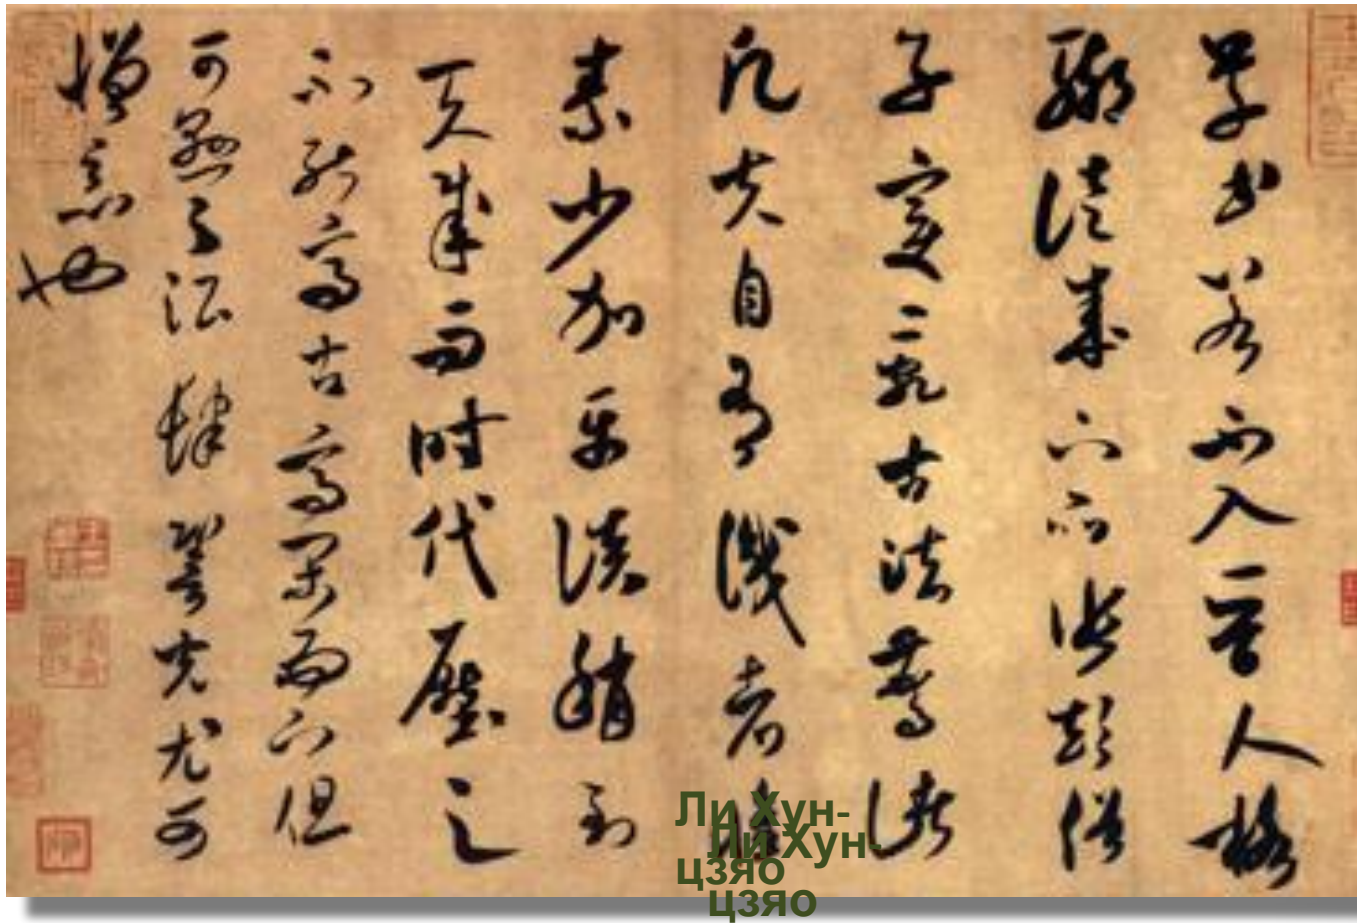 草書若不入晉人格
輒徒成下品張顛俗
子變亂古法驚諸
凡夫自有識者懷
素少加平淡稍到
天成而時代壓之
不能高古高閑而下但
可懸之酒肆䛒光尤可
憎惡也
Ли Хун-
цзяо
Ли Хун-
цзяо